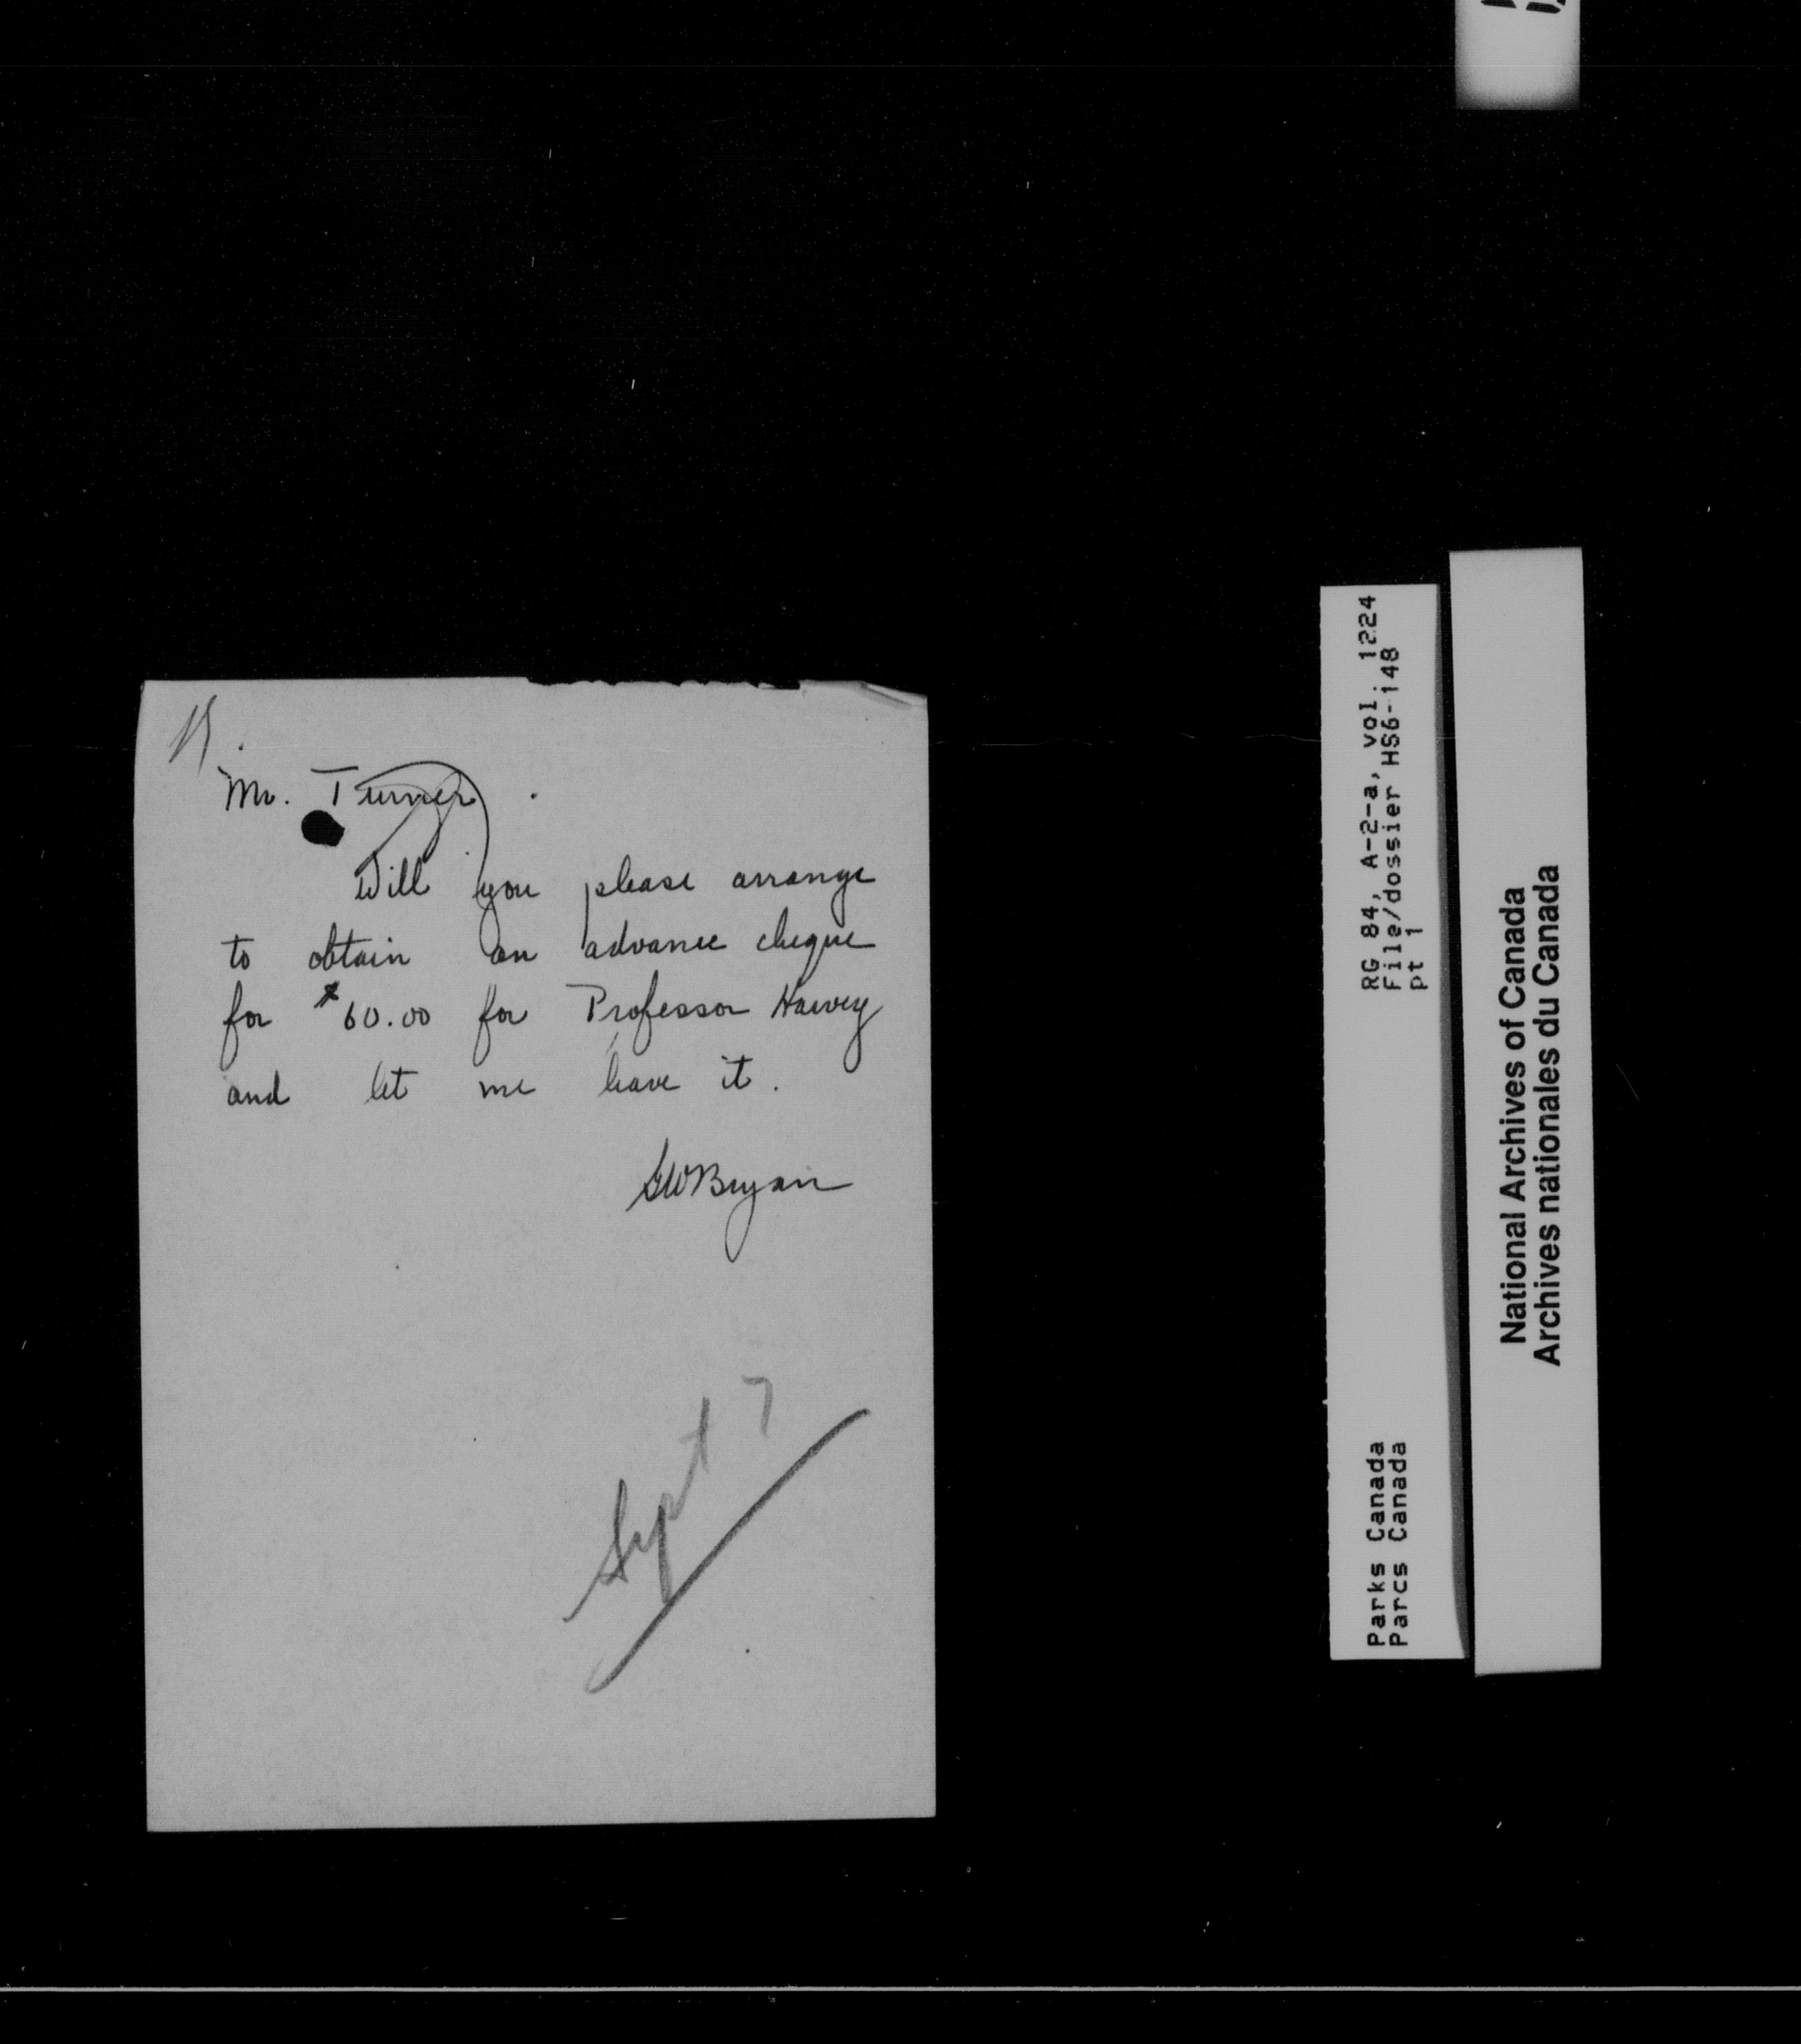 Mr. Turner.
Will you please arrange
to obtain an advance cheque
for $60.00 for Professor Harvey
and let me have it.
GWBryan
Sept 7
RG 84, A-2-a, vol. 1224
File/dossier HS6-148
pt 1
Parks Canada
Parcs Canada
National Archives of Canada
Archives nationales du Canada